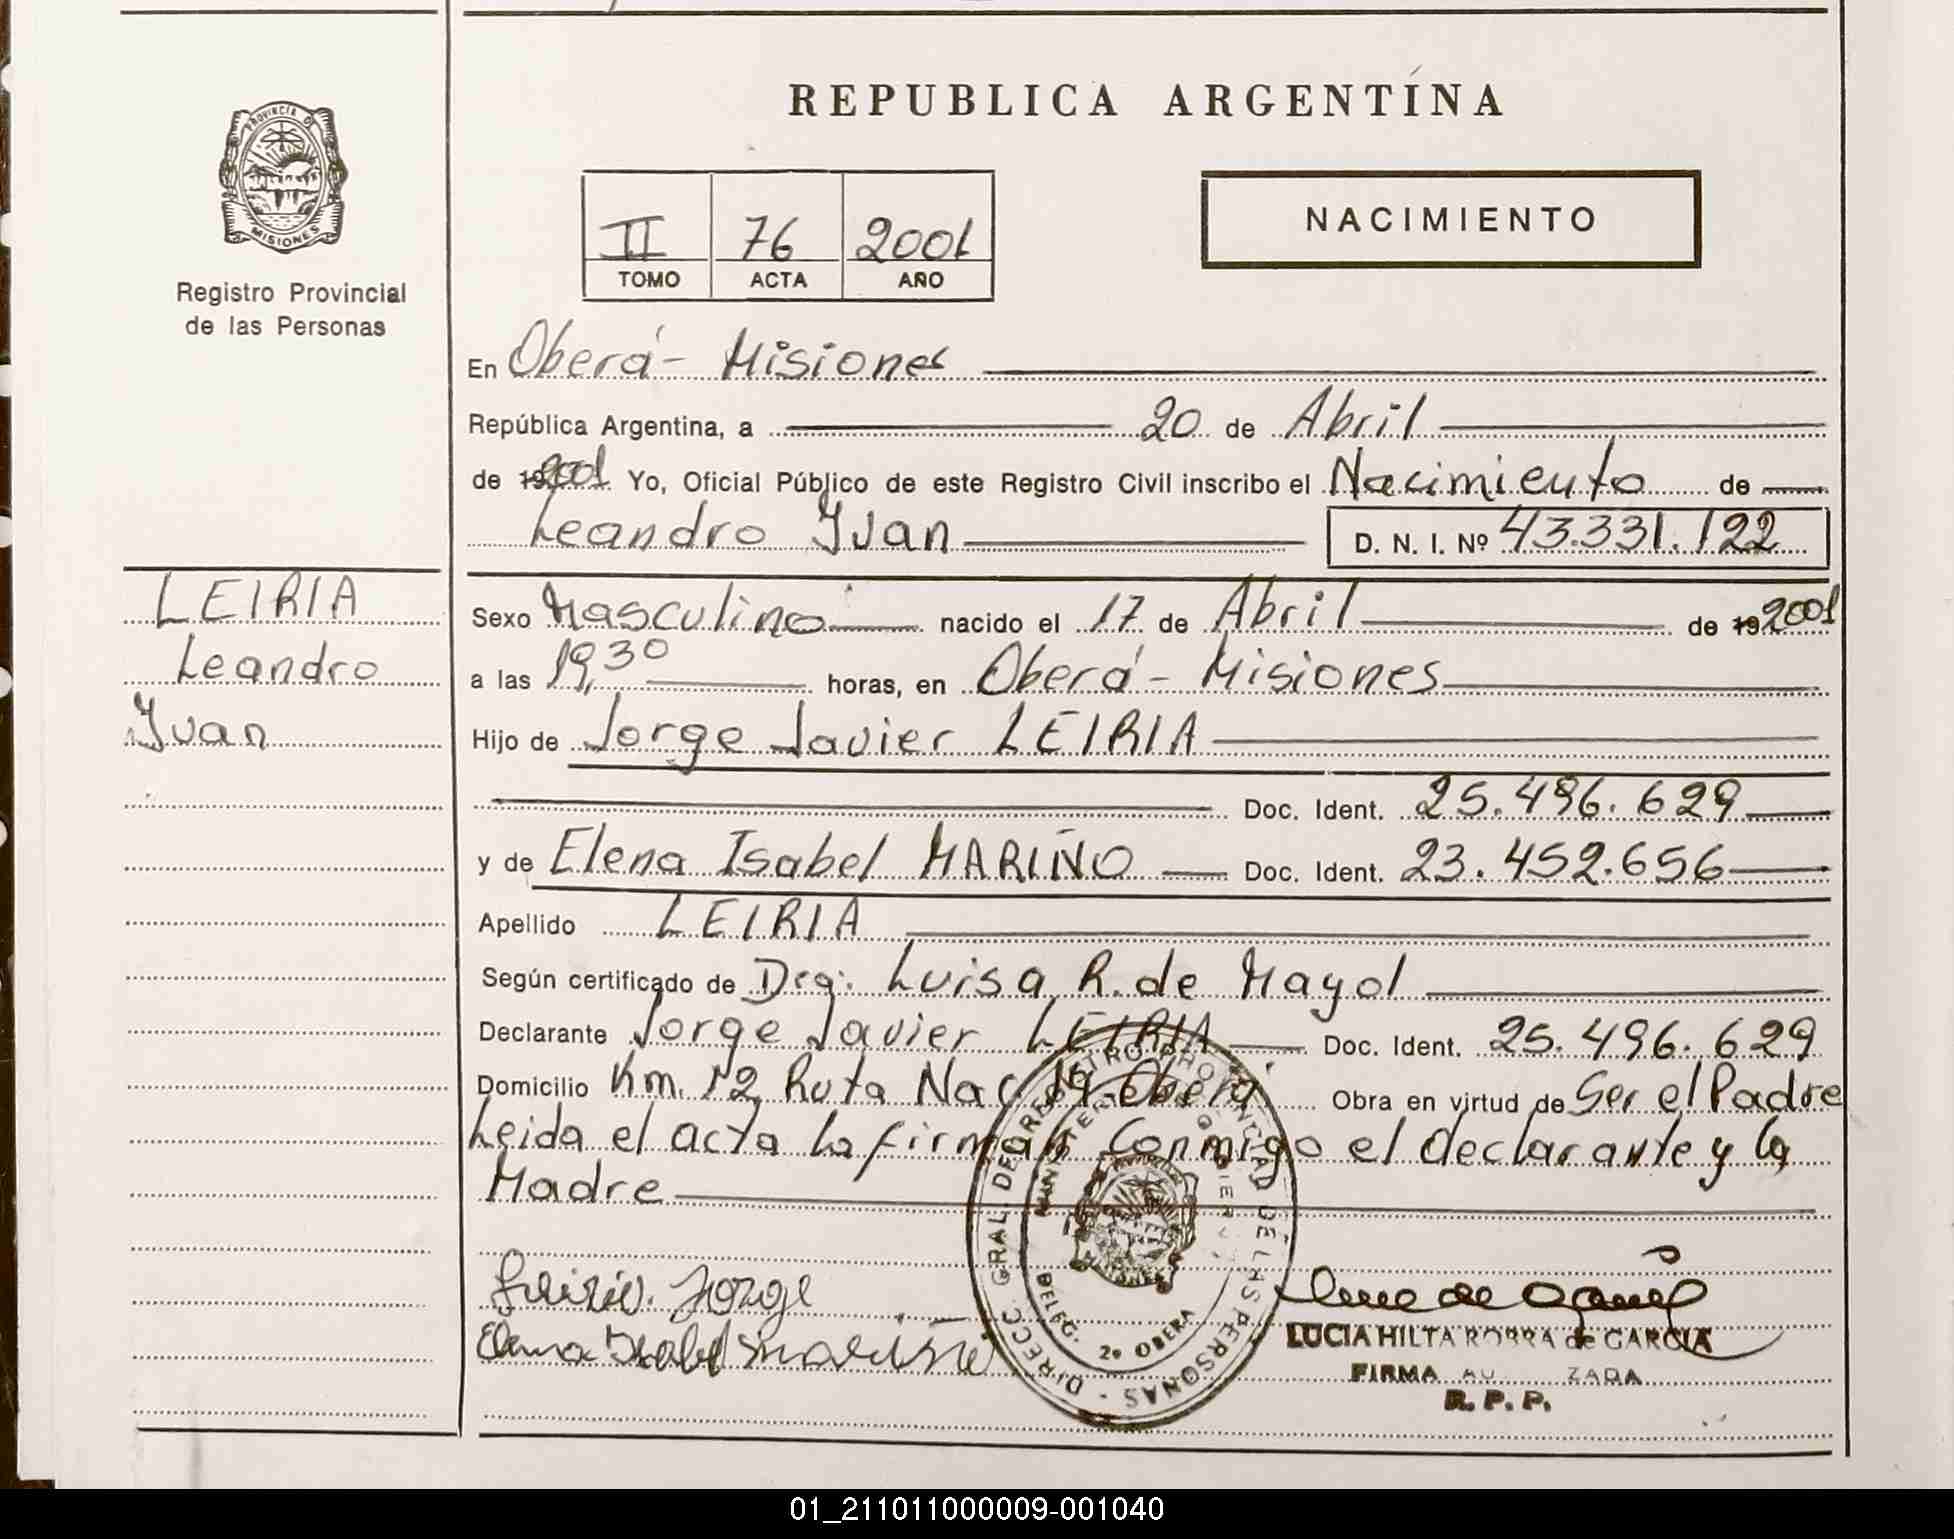 REPUBLICA ARGENTINA
PROVINCIA D
MISIONES
Registro Provincial
de las Personas
II 76 2001
TOMO ACTA AÑO
NACIMIENTO
En Oberá - Misiones
República Argentina, a 20 de Abril
de 19 2001 Yo, Oficial Público de este Registro Civil inscribo el Nacimiento de
Leandro Ivan D. N. I. Nº 43.331.122
LEIRIA
Leandro
Ivan
Sexo Masculino nacido el 17 de Abril de 19 2001
a las 19,30 horas, en Oberá - Misiones
Hijo de Jorge Javier LEIRIA
Doc. Ident. 25.496.629
y de Elena Isabel MARIÑO Doc. Ident. 23.452.656
Apellido LEIRIA
Según certificado de Dra: Luisa R. de Mayol
Declarante Jorge Javier LEIRIA Doc. Ident. 25.496.629
Domicilio Km. 12 Ruta Nac 14-Oberá Obra en virtud de Ser el Padre
Leida el acta la firman conmigo el declarante y la
Madre
Leiria. Jorge
Elena Isabel Mariño
DIRECC. GRAL. DE REGISTRO PROVINCIAL DE LAS PERSONAS
DELEG. 2º OBERA
LUCIA HILTA ROBRA de GARCIA
FIRMA AU ZADA
R. P. P.
01_211011000009-001040